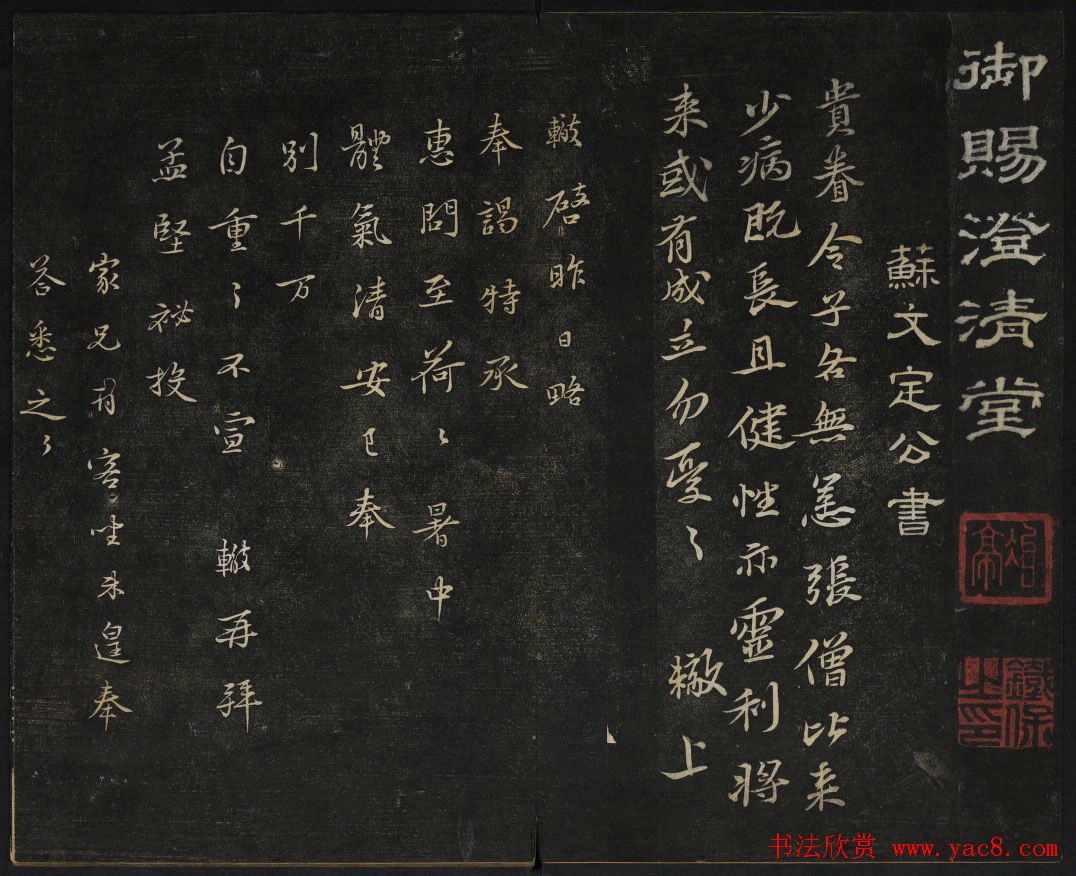 御賜澄清堂
鐵保之印
蘇文定公書
貴眷令子各無恙張僧比來
少病既長且健性亦靈利將
来或有成立勿憂〻 轍上
轍啓昨日略
奉謁特承
惠問至荷〻暑中
體氣清安已奉
別千万
自重〻不宣 轍再拜
孟堅祕投
家兄有客坐未遑奉
答悉之〻
书法欣赏 www.yac8.com